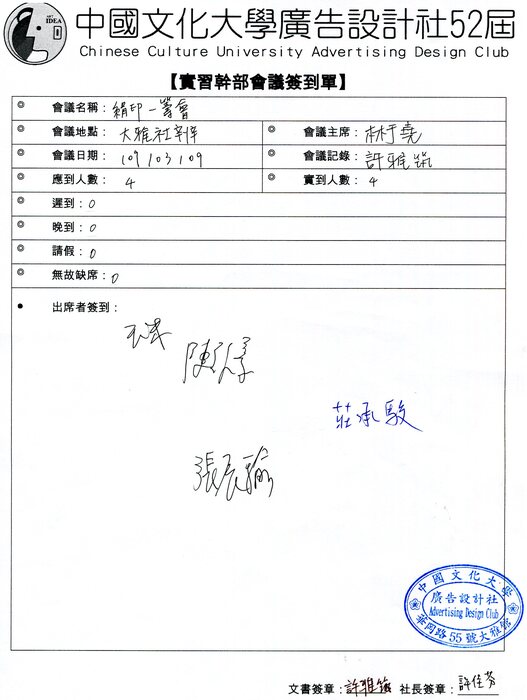 ART
IDEA
中國文化大學廣告設計社52屆
Chinese Culture University Advertising Design Club
【實習幹部會議簽到單】
◎ 會議名稱：絹印一籌會
◎ 會議地點：大雅社辦 ◎ 會議主席：林于堯
◎ 會議日期：109/03/09 ◎ 會議記錄：許雅筑
◎ 應到人數：4 ◎ 實到人數：4
◎ 遲到：0
◎ 晚到：0
◎ 請假：0
◎ 無故缺席：0
● 出席者簽到：
莊承駿
張辰瑜
中國文化大學
廣告設計社
Advertising Design Club
華岡路55號大雅館
文書簽章：許雅筑 社長簽章：許佳芬